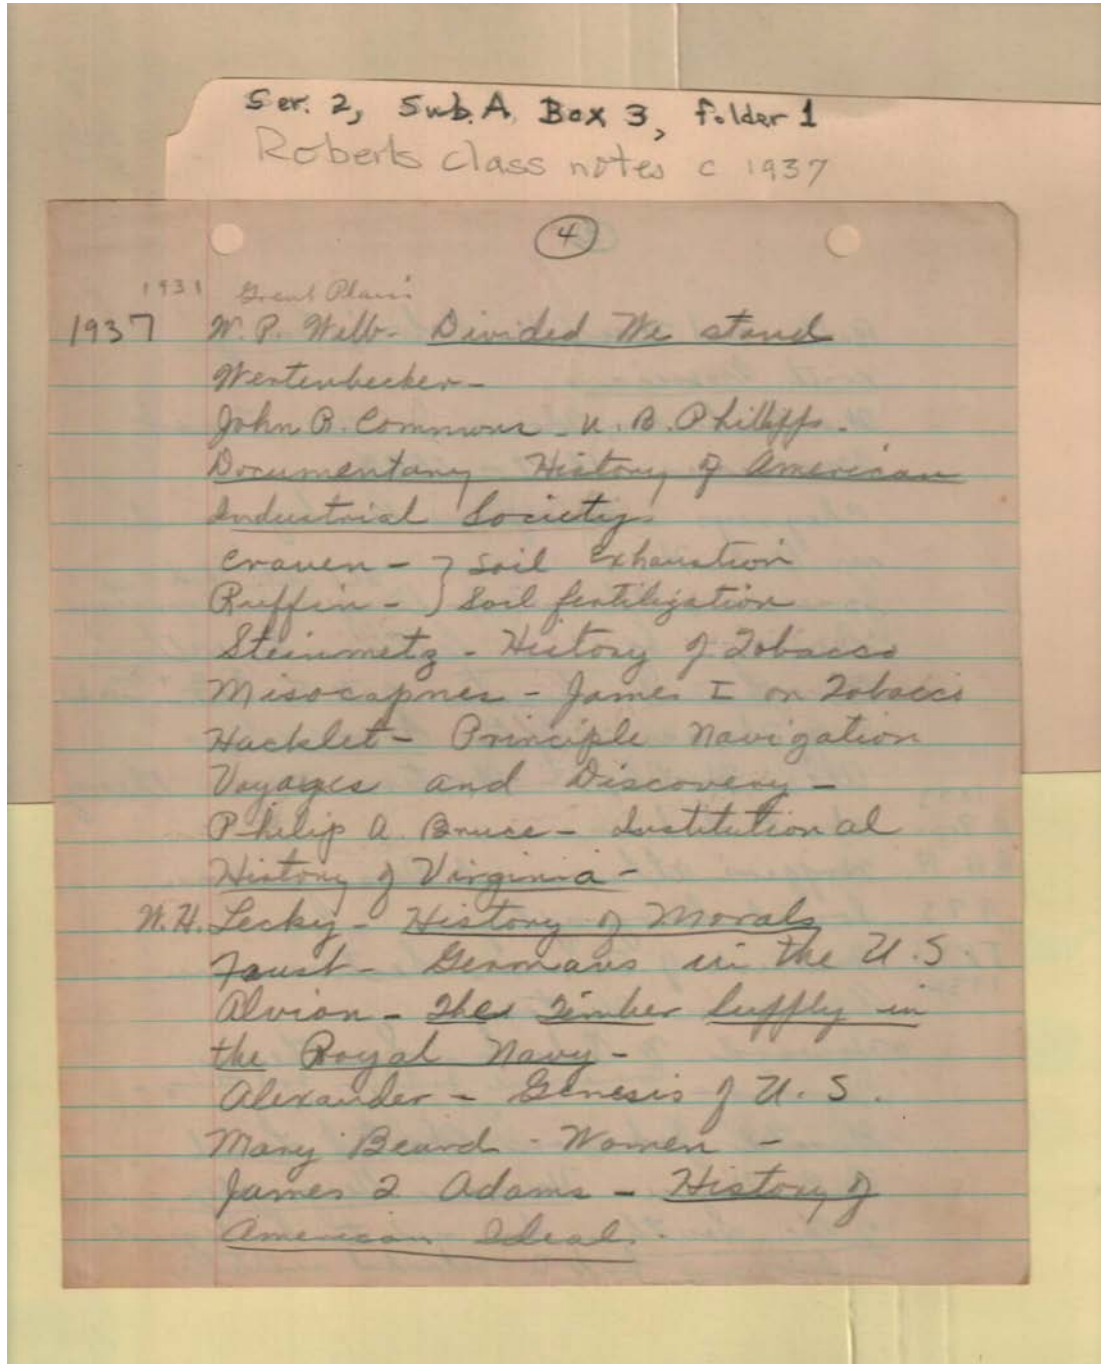 Ser. 2, Sub. A, Box 3, folder 1
Roberts class notes c 1937
4
1931 Great Plains
1937 W. P. Webb - Divided We stand
Wertenbecker -
John R. Commons - U. B. Phillipps -
Documentany History of American
Industrial Society
Craven - } Soil Exhaustion
Ruffin - } Soil fertilization
Steinmetz - History of Tobacco
Misocapnes - James I on Tobacco
Hacklet - Principle Navigation
Voyages and Discovery -
Philip A. Bruce - Institutional
History of Virginia -
W. H. Lecky - History of Morals
Faust - Germans in the U.S.
Alvion - The Timber Supply in
the Royal Navy -
Alexander - Genesis of U.S.
Mary Beard - Women -
James T Adams - History of
American Ideal.